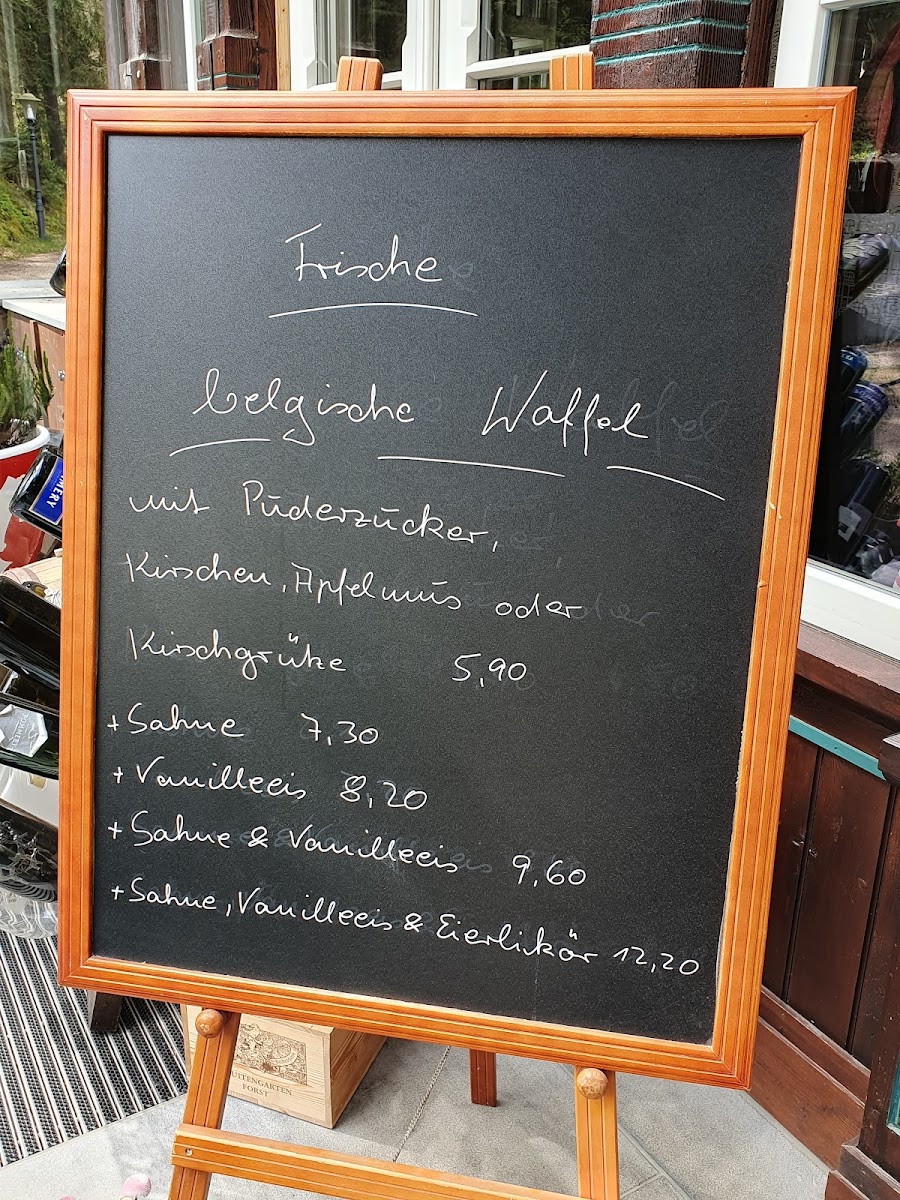 Frische
belgische Waffel
mit Puderzucker,
Kirschen, Apfelmus oder
Kirschgrütze 5,90
+ Sahne 7,30
+ Vanilleeis 8,20
+ Sahne & Vanilleeis 9,60
+ Sahne, Vanilleeis & Eierlikör 12,20
UITENGARTEN
FORST
MERY